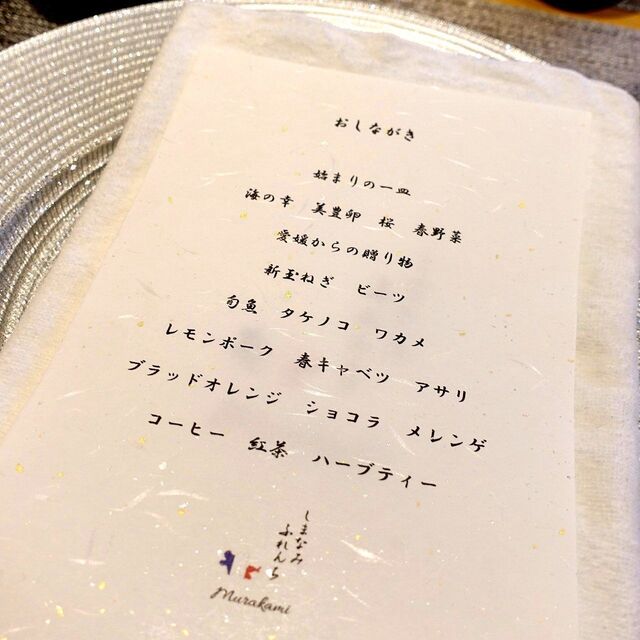 おしながき
始まりの一皿
海の幸 美豊卵 桜 春野菜
愛媛からの贈り物
新玉ねぎ ビーツ
旬魚 タケノコ ワカメ
レモンポーク 春キャベツ アサリ
ブラッドオレンジ ショコラ メレンゲ
コーヒー 紅茶 ハーブティー
しまなみ
ふれんち
Murakami